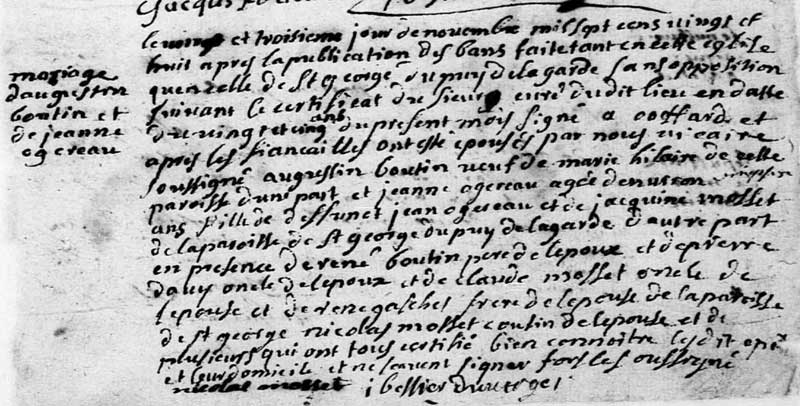 mariage
daugustin
boutin et
de jeanne
ogereau
le vingt et troisieme jour de novembre mil sept cens vingt et
huit apres la publication des bans faite tant en cette eglise
quen celle de st george du puy de la garde sans opposition
suivant le certificat du sieur curé dudit lieu en datte
du vingt et cinq ans du present mois signé a ooffard et
apres les fiancailles ont esté epousés par nous vicaire
soussigné augustin boutin veuf de marie hilaire de cette
paroisse dune part et jeanne ogereau agée denviron
ans fille de deffunct jean ogereau et de jacquine mosset
de la paroisse de st george du puy de la garde dautre part
en presence de rené boutin pere de lepoux et de pierre
oncle de lepoux et de claude mosset oncle de
lepouse et de rene gaschet frere de lepouse de la paroisse
de st george nicolas mosset cousin de lepouse et de
plusieurs qui ont tous certifié bien connoitre lesdit
et leur domicile et ne scavent signer fors les oussigné
nicolas mosset j bessier